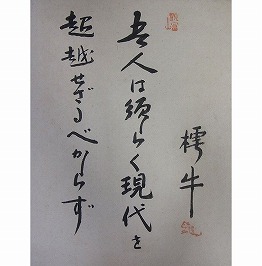 樗牛
吾人は須らく現代を
超越せざるべからず